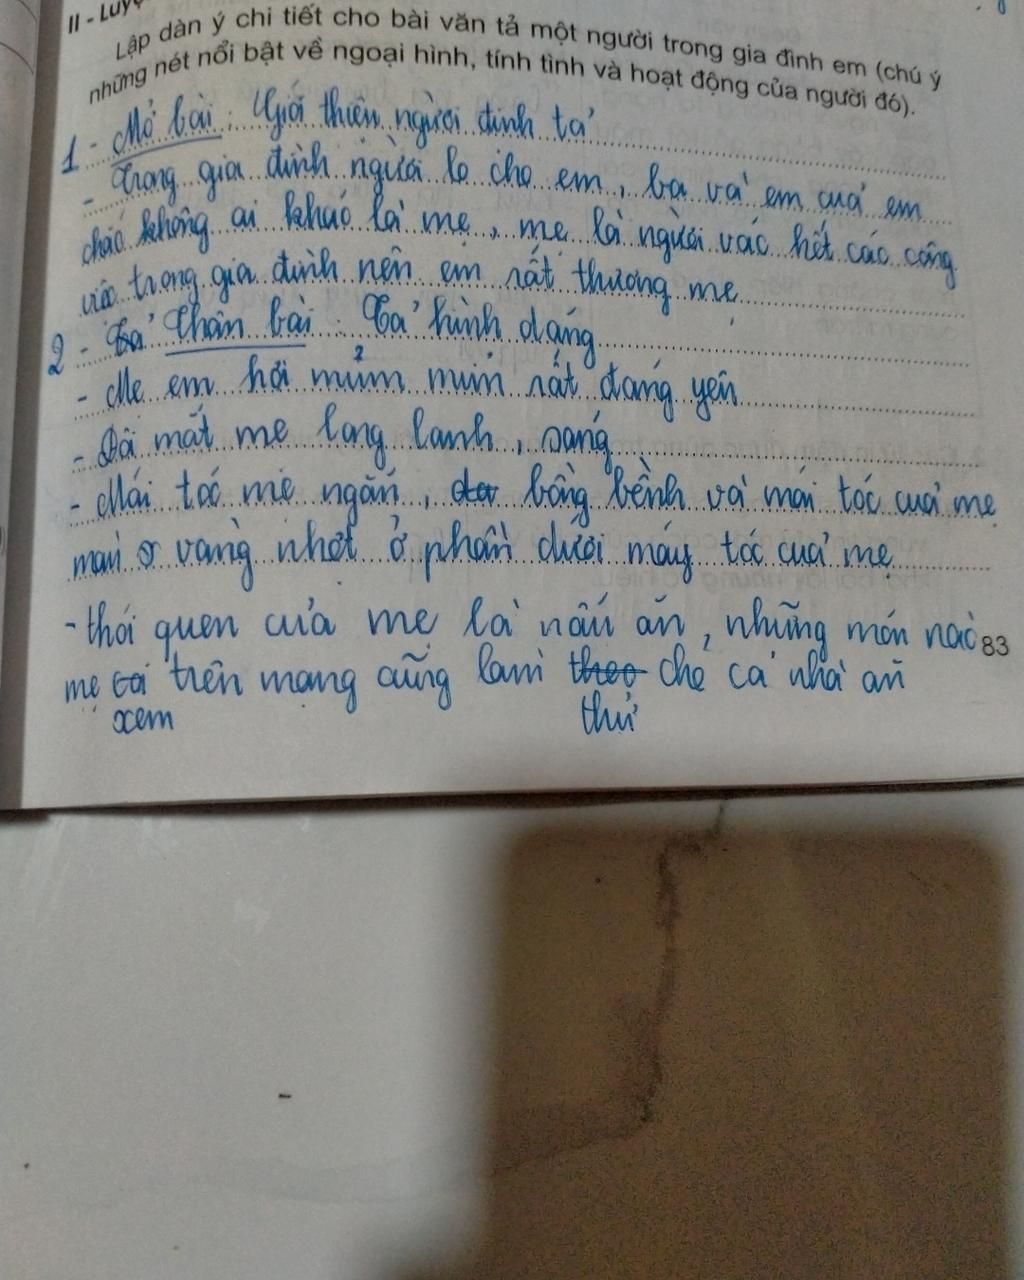 II - Luyệ
Lập dàn ý chi tiết cho bài văn tả một người trong gia đình em (chú ý
những nét nổi bật về ngoại hình, tính tình và hoạt động của người đó).
1 - Mở bài : Giới thiệu người định tả
- Trong gia đình người lo cho em, ba và em cuả em
chắc không ai khác là mẹ, mẹ là người vác hết các công
việc trong gia đình nên em rất thương mẹ
2 - Tả Thân bài : Tả hình dạng
- Mẹ em hơi mủm mỉm rất đáng yên
- Đôi mắt mẹ long lanh, sáng
- Mái tóc mẹ ngắn, bồng bềnh và mái tóc cuả mẹ
màu vàng nhợt ở phần dưới máy tóc cuả mẹ
- thói quen của mẹ là nấu ăn, những món nào
83
mẹ có trên mạng cũng làm theo chẻ cả nhà ăn
xem thử